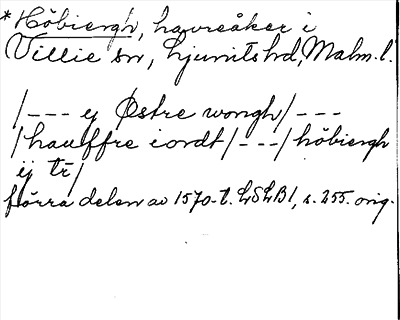 *Höbiergh, havreåker i
Villie sn, Ljunits hd, Malm. l.
/--- ij Østre wongh/---
/hauffre iordt/---/höbiergh
ij tr/
förra delen av 1570-t. LSLB1, s. 255. orig.